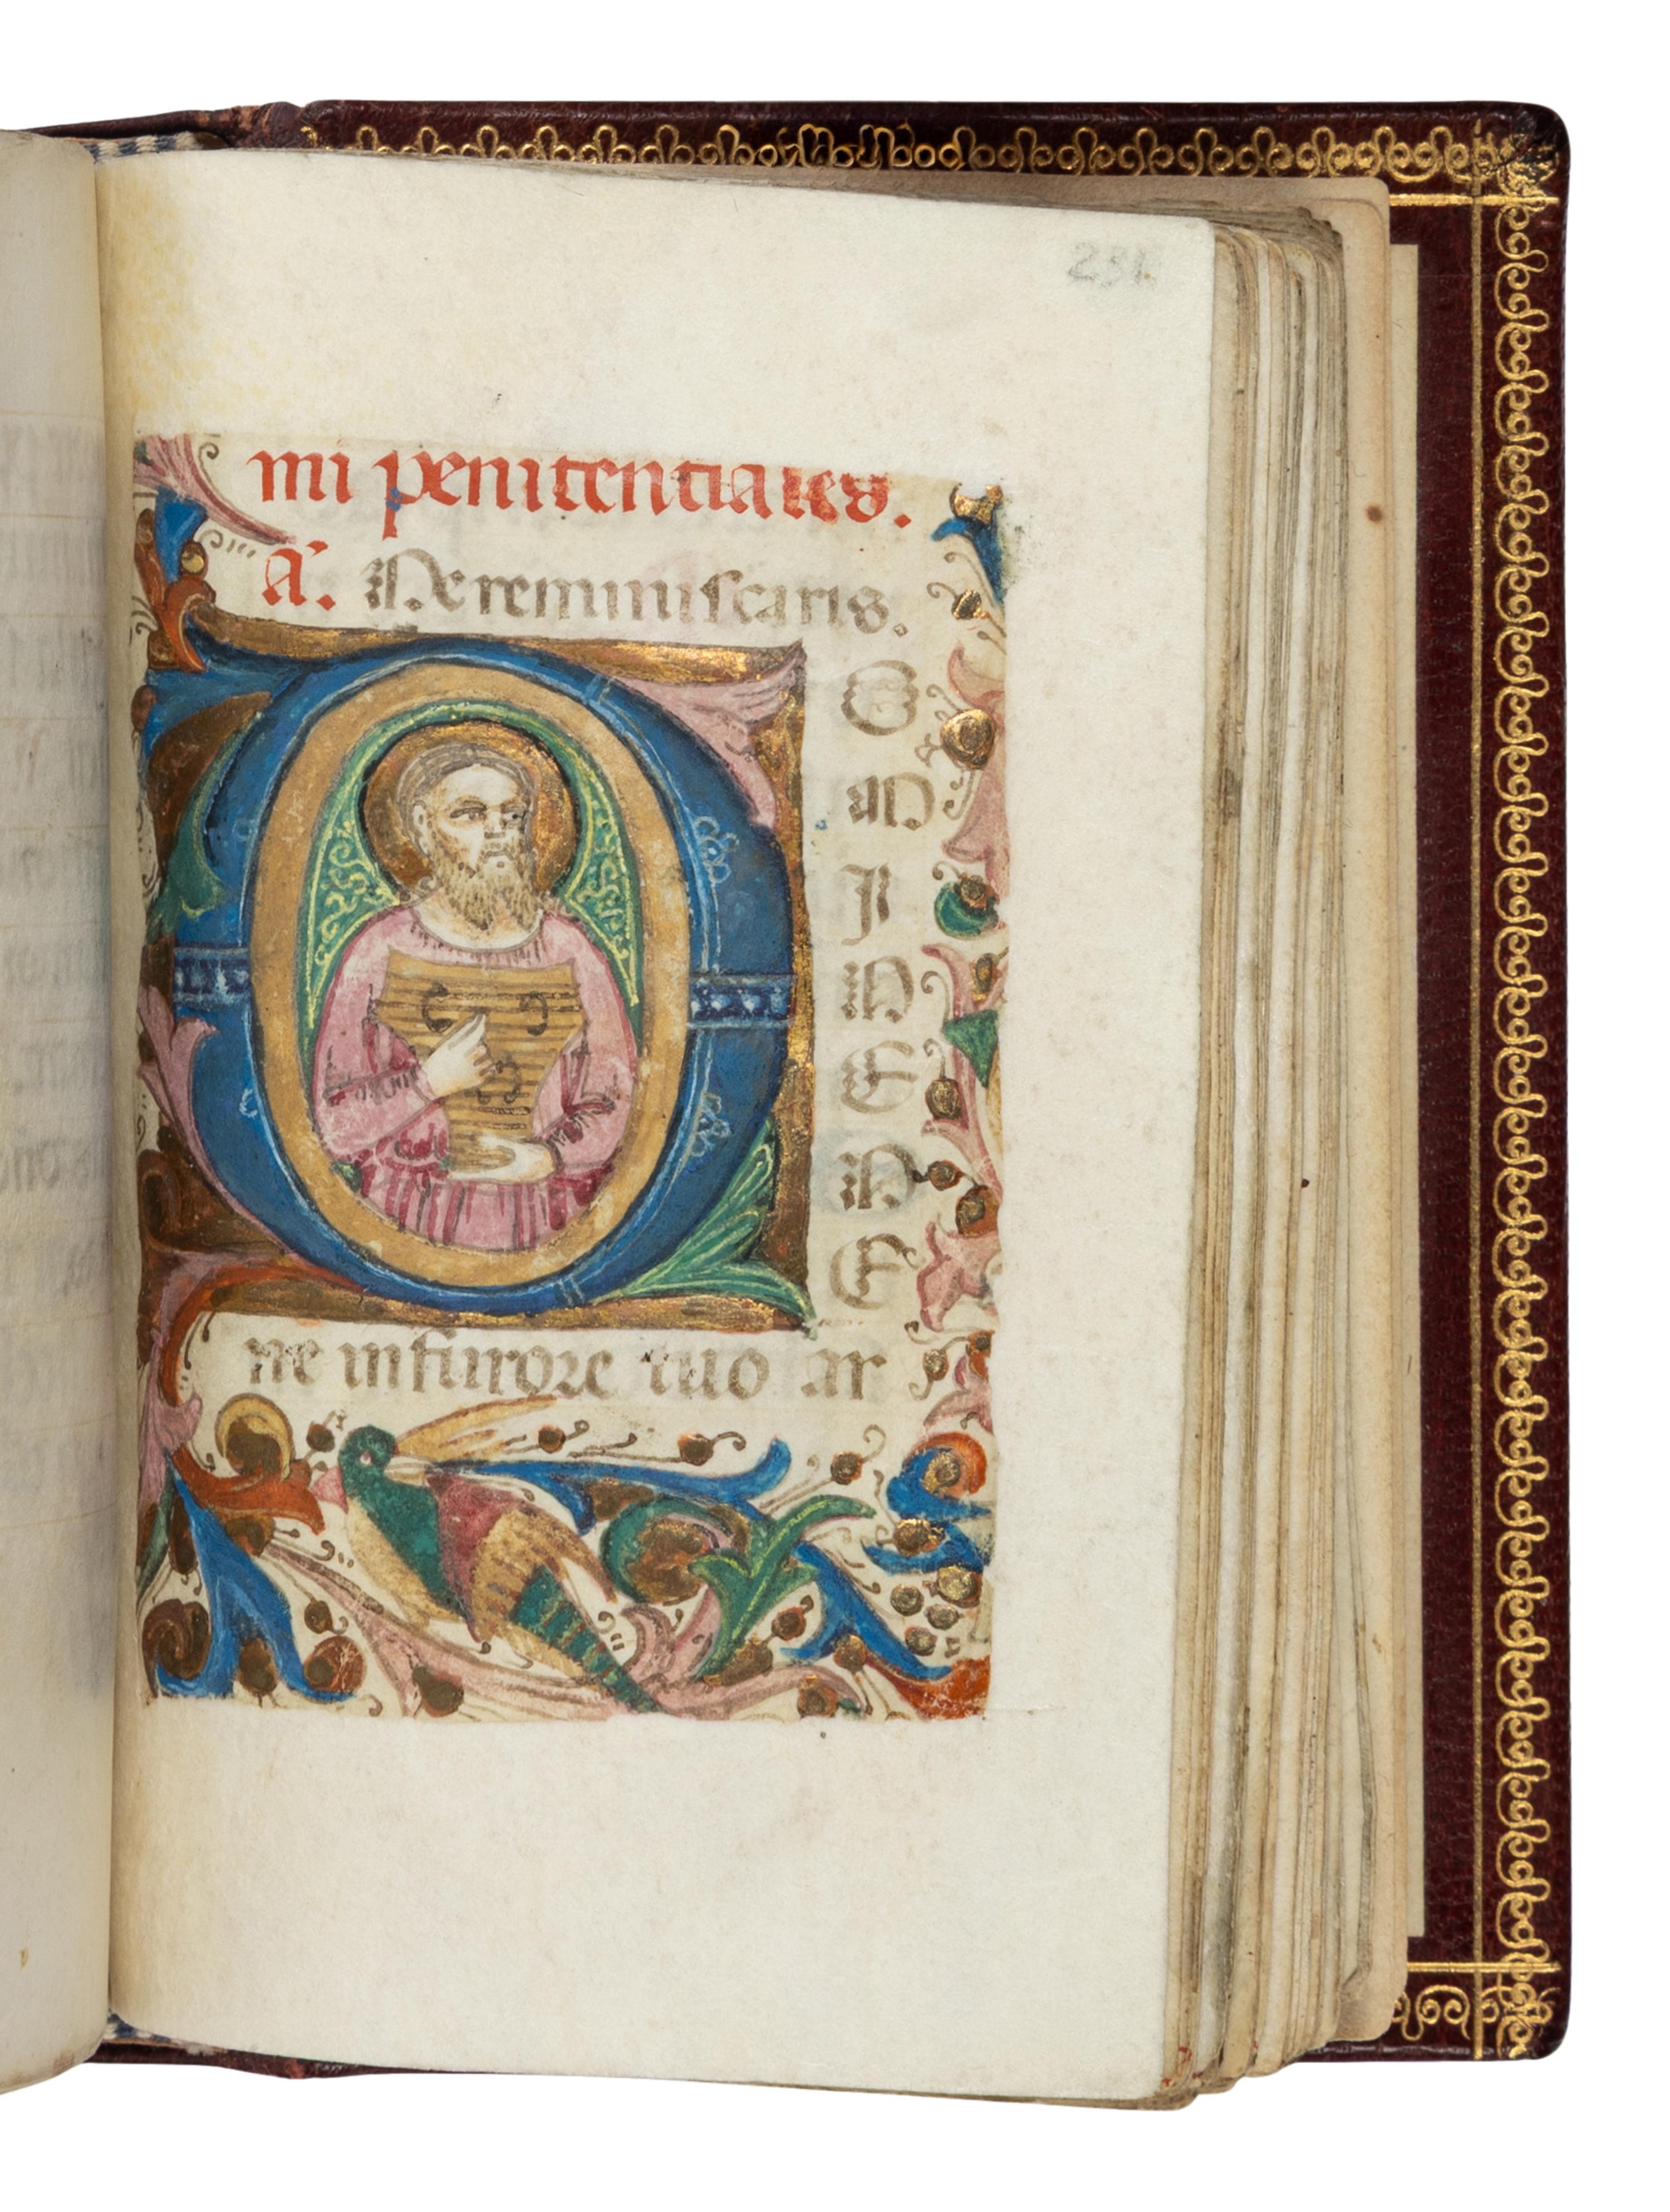 231.
mi penitentiales.
A. Ne reminiscaris.
D O
M
I
N
E
N
E
ne in furore tuo ar